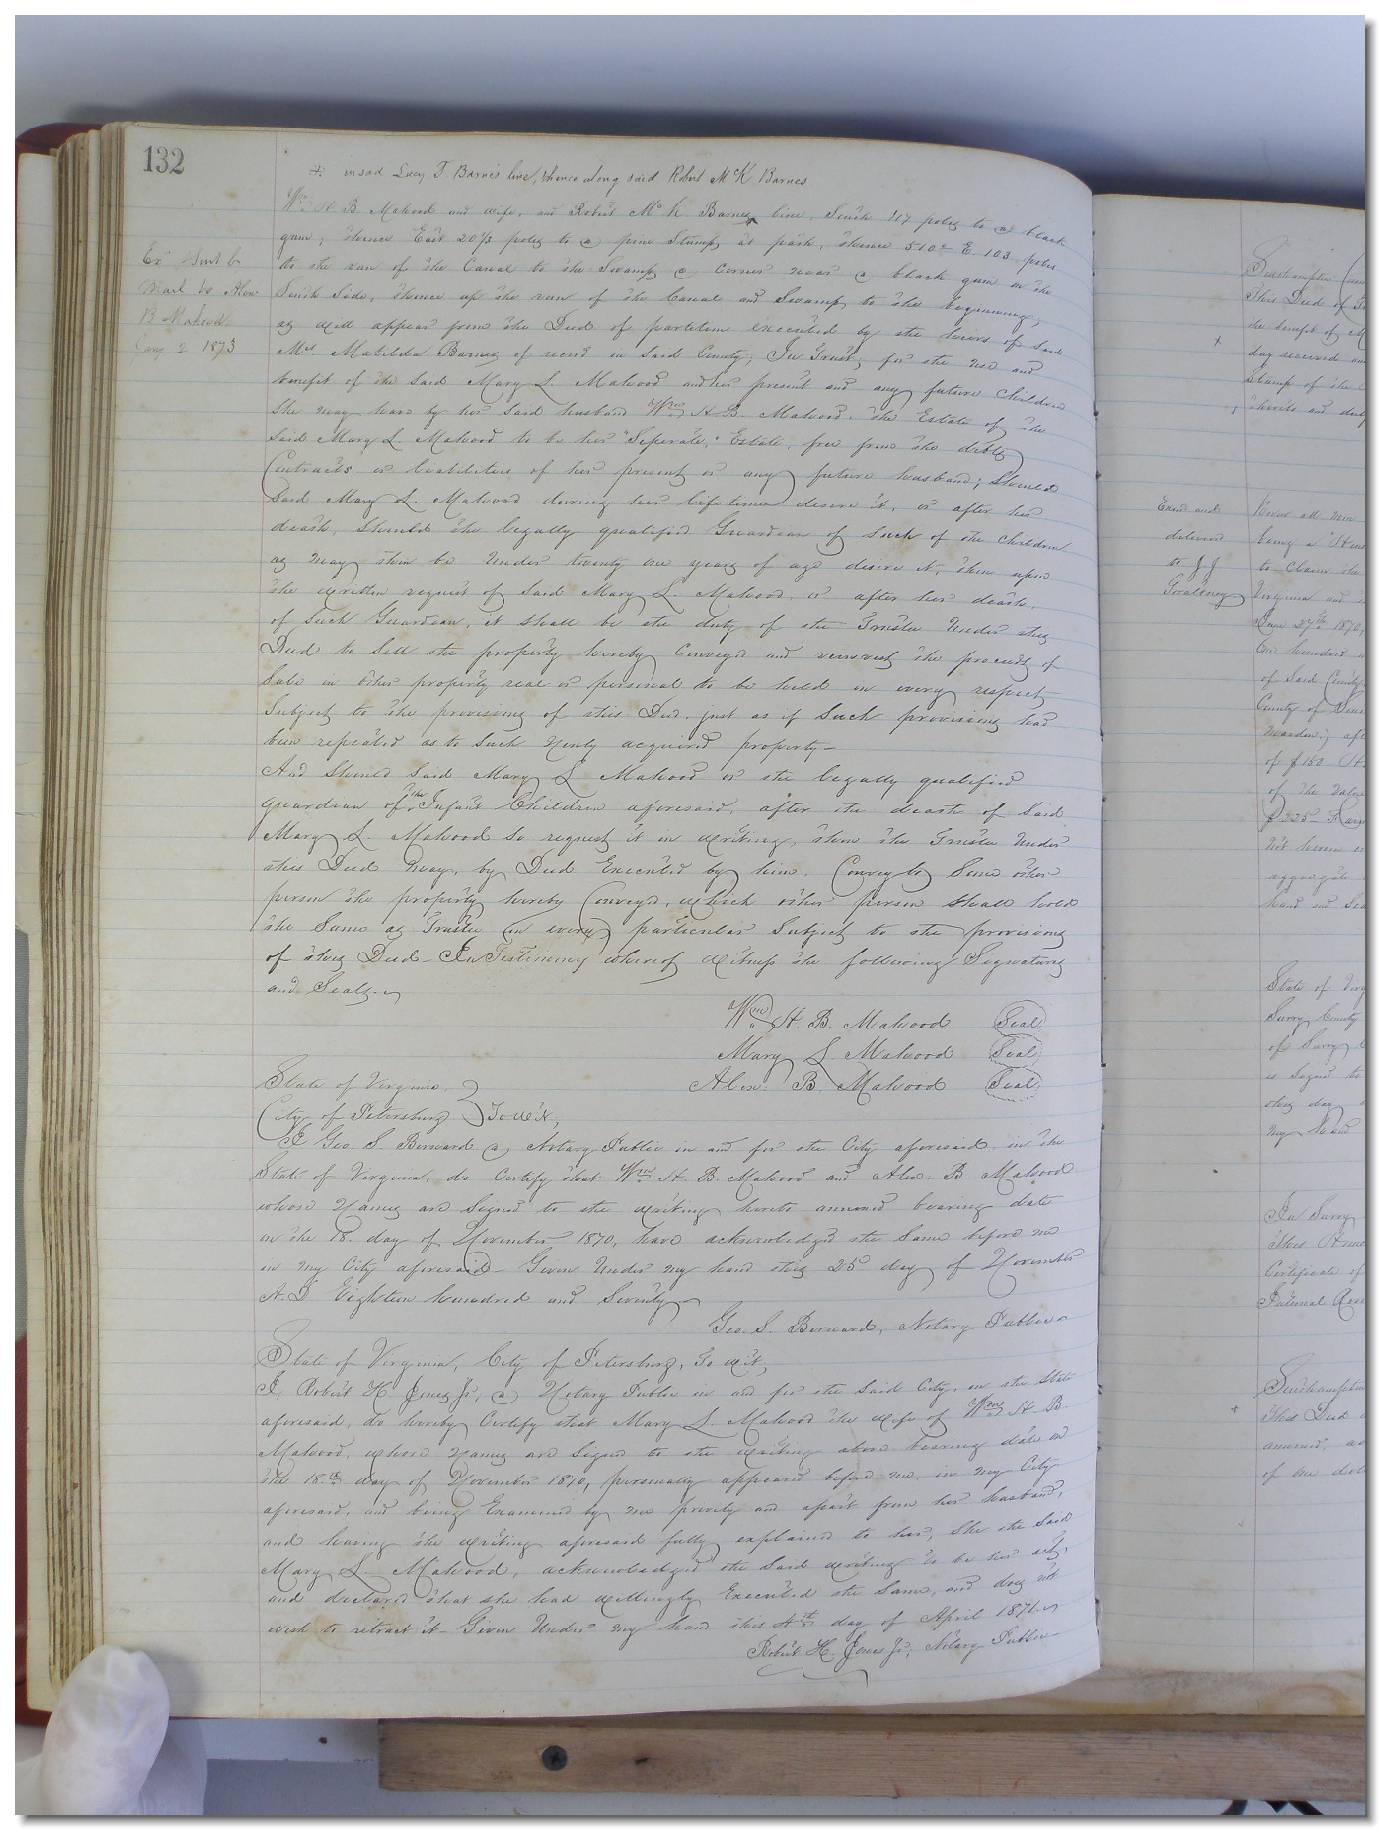 132
in said Lucy T Barnes line, thence along said Robert McK Barnes
Wm H B Malvood and wife, and Robert McK Barnes line, South 117 poles to a black
gum, thence East 20⅓ poles to a pine Stump at path, thence S 10° E. 103 poles
to the run of the Canal to the Swamp a corner near a black gum on the
South Side, thence up the run of the Canal and Swamp to the beginning,
as will appear from the Deed of partition executed by the heirs of said
Mrs Matilda Barnes of record in said County; In Trust; for the use and
benefit of the said Mary L. Malvood and her present and any future children
She may have by her said husband Wm H. B. Malvood. The Estate of the
said Mary L. Malvood to be her "Seperate," Estate, free from the debts
Contracts or liabilities of her present or any future husband; Should
said Mary L. Malvood during her life time desire it, or after her
death, Should the legally qualified Guardian of such of the children
as may then be under twenty one years of age desire it, then upon
the written request of said Mary L. Malvood, or after her death,
of such Guardian, it shall be the duty of the Trustee under this
Deed to sell the property hereby conveyed and reinvest the proceeds of
Sale in other property real or personal to be held in every respect
Subject to the provisions of this Deed, just as if such provisions had
been repeated as to such newly acquired property—
And Should said Mary L Malvood or the legally qualified
guardian of the Infant Children aforesaid, after the death of said
Mary L. Malvood so request it in writing, then the Trustee under
this Deed may, by Deed Executed by him, Convey to Some other
person the property hereby Conveyed, which other person shall hold
the Same as Trustee in every particular Subject to the provisions
of this Deed— In Testimony whereof witness the following Signatures
and Seals.
Wm H. B. Malvood Seal
Mary L Malvood Seal
Alex: B. Malvood Seal
State of Virginia,
City of Petersburg To wit,
I Geo S. Bernard a Notary Public in and for the City aforesaid in the
State of Virginia, do Certify that Wm H. B. Malvood and Alex. B Malvood
whose Names are Signed to the writing hereto annexed bearing date
on the 18 day of November 1870, have acknowledged the Same before me
in my City aforesaid— Given Under my hand this 25 day of November
A. D Eighteen hundred and Seventy
Geo. S. Bernard, Notary Public
State of Virginia, City of Petersburg, To wit;
I, Robert H Jones Jr, a Notary Public in and for the said City, in the State
aforesaid, do hereby Certify that Mary L. Malvood the wife of Wm H B.
Malvood, whose Names are Signed to the writing above bearing date on
the 18th day of November 1870, personally appeared before me, in my City
aforesaid, and being Examined by me privily and apart from her husband,
and having the writing aforesaid fully explained to her, She the Said
Mary L. Malvood, acknowledged the Said writing to be her act,
and declared that she had willingly Executed the Same, and does not
wish to retract it— Given Under my hand this 4th day of April 1871.
Robert H. Jones Jr, Notary Public
Exd Sent by
Mail to Alex
B Malvood
1873
Examd and
delivered
to J J
Gwaltney
Southampton
This Deed of
the benefit of
day received
Stamp of the
thereto and
Know all men
being a
to claim the
Virginia and
June 27th 1870,
One hundred
of Said County
County of
of $150
of the value
$225
Not been
aggregate
hand and
State of Virg
Surry County
of Surry
is Signed to
this day
my hand
In Surry
This
Certificate of
Internal Rev
Southampton
This Deed
annexed,
of one